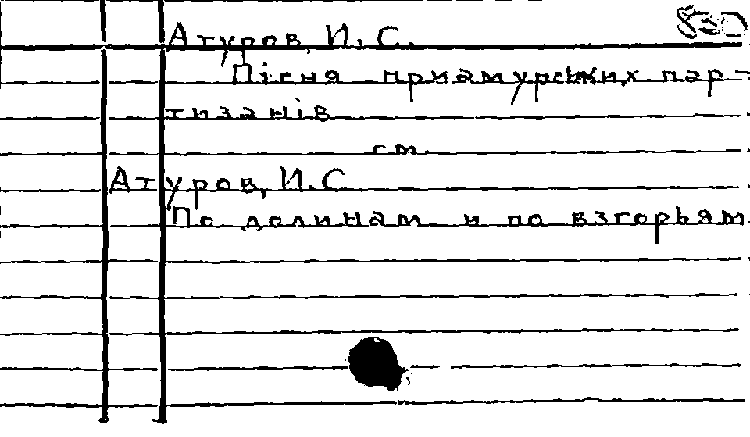 Атуров, И. С.
Пісня приамурських пар-
тизанів
см.
Атуров, И. С
По долинам и по взгорьям